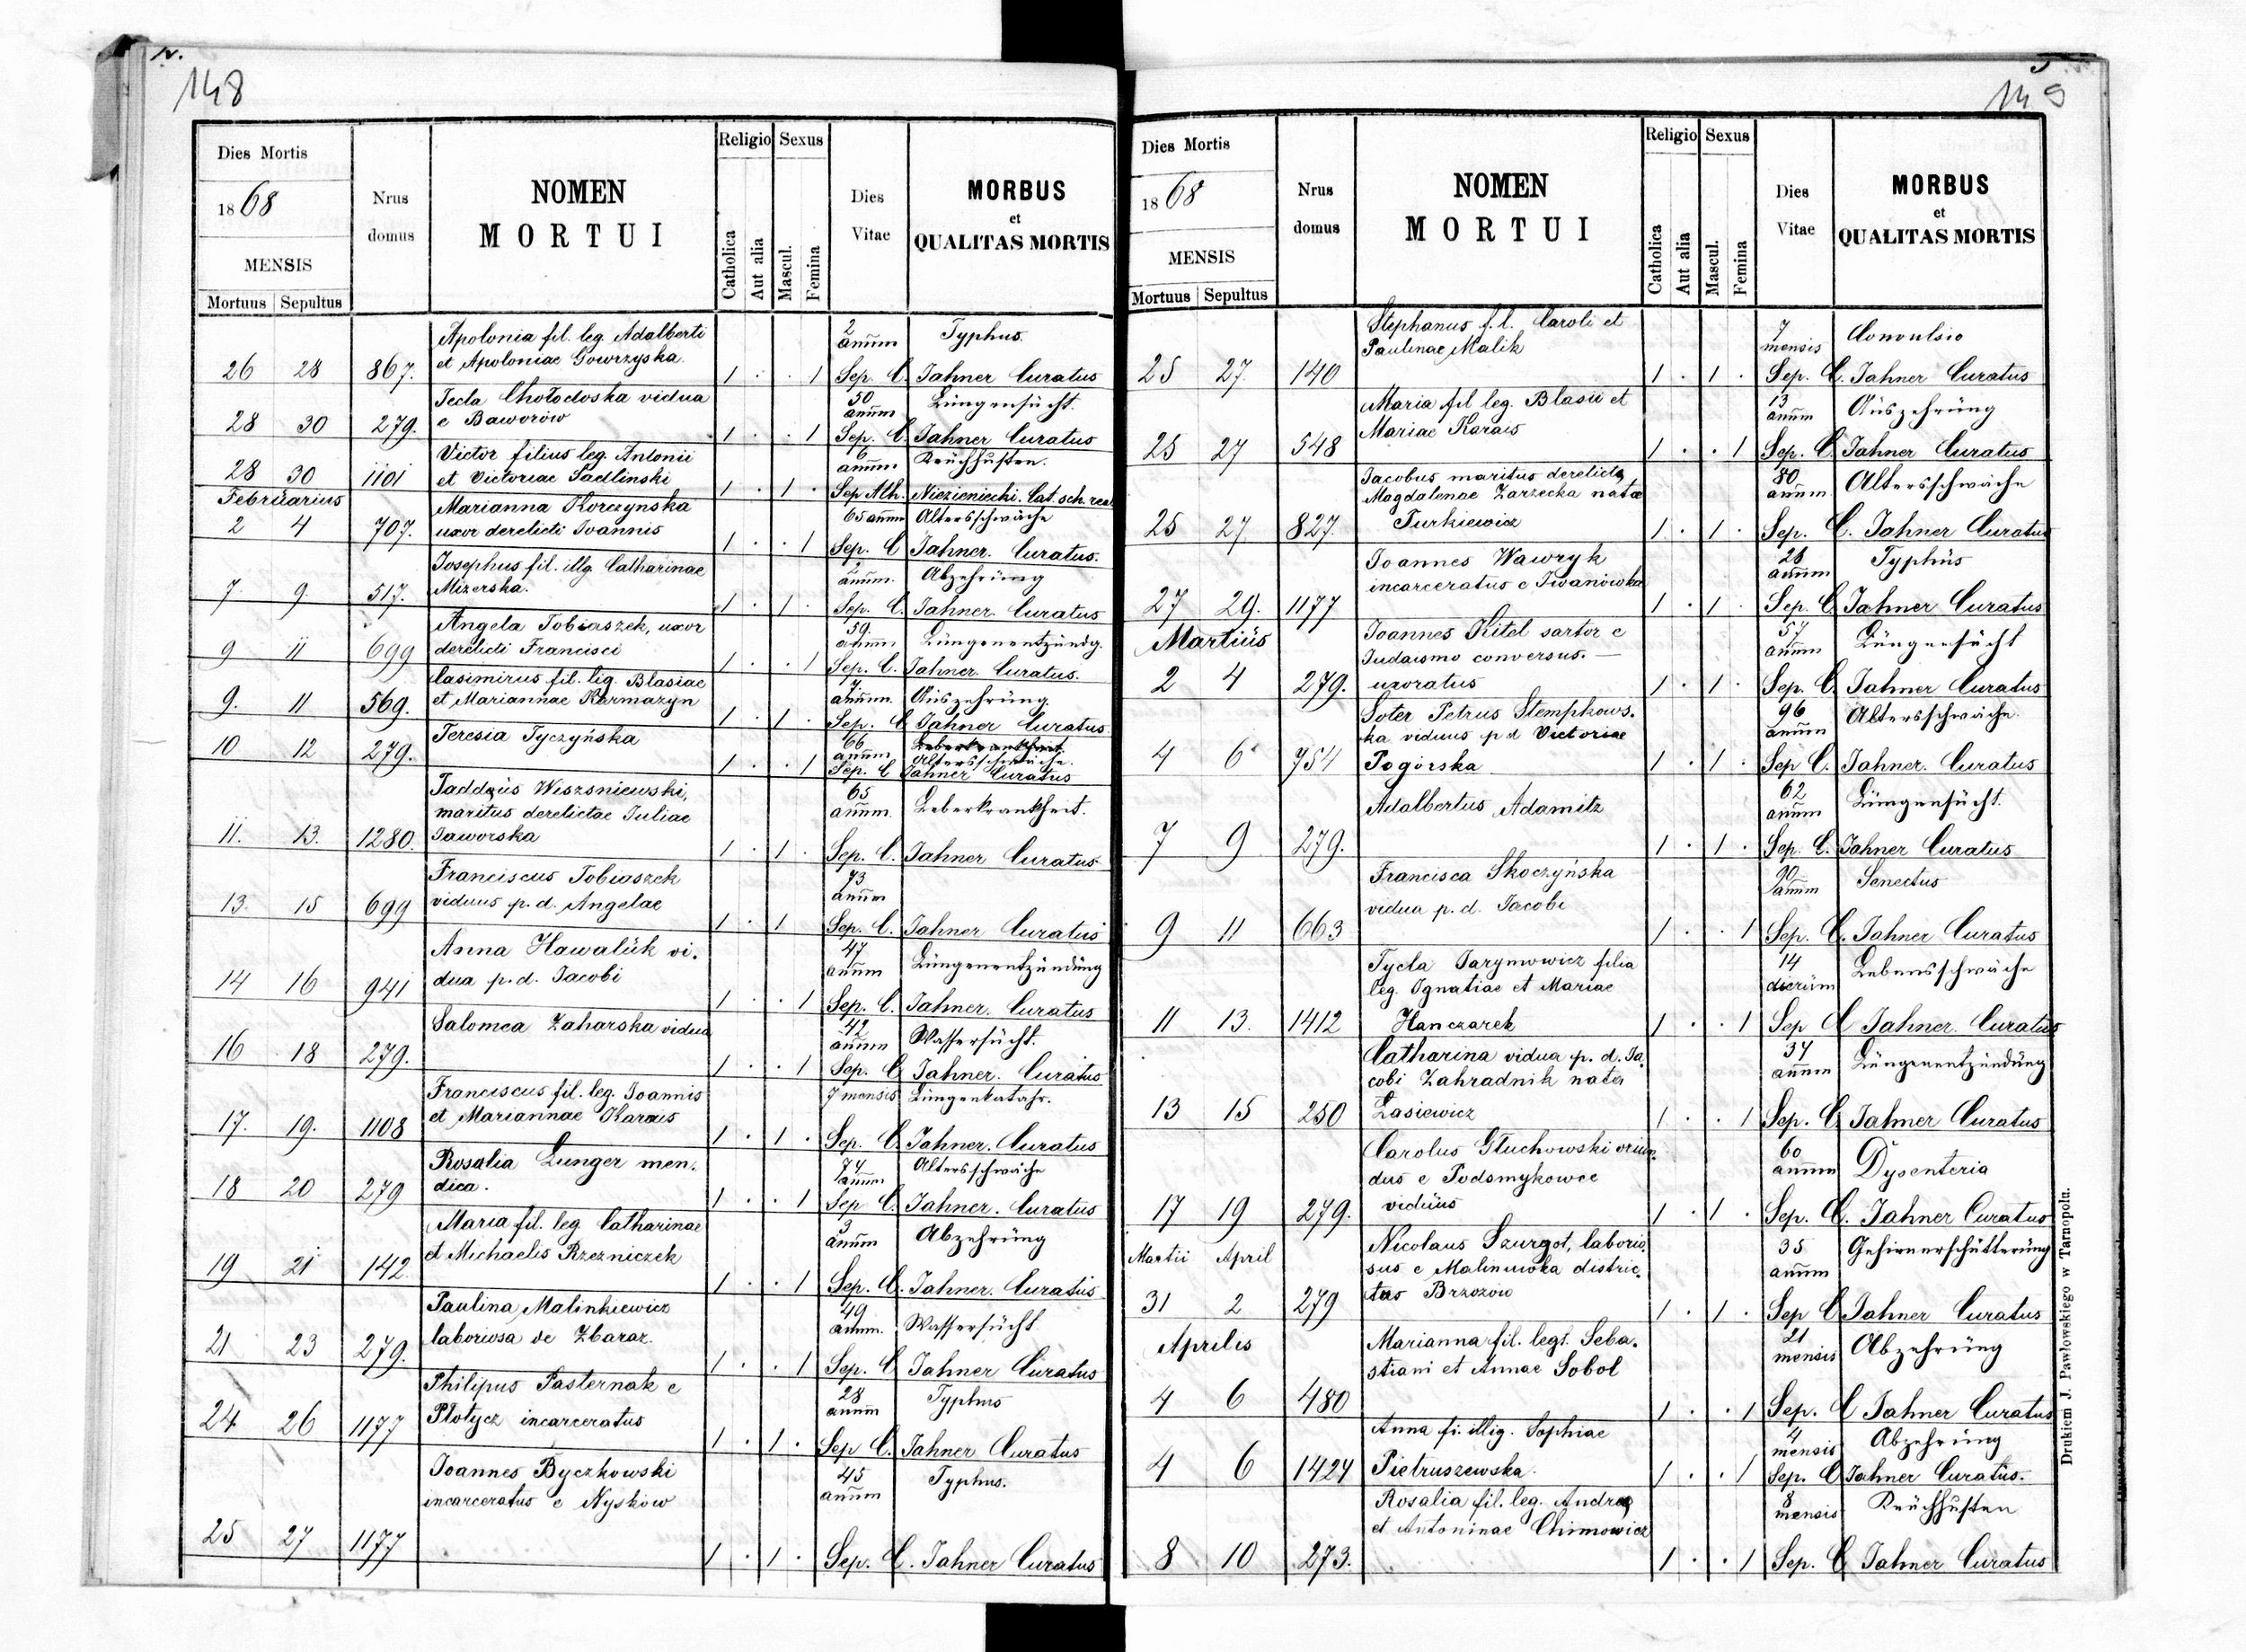 148
Dies Mortis
1868
MENSIS
Mortuus Sepultus
Nrus domus
NOMEN
MORTUI
Religio
Catholica
Aut alia
Sexus
Mascul.
Femina
Dies
Vitae
MORBUS
et
QUALITAS MORTIS
Apolonia fil. leg. Adalberti 2 anum Typhus.
et Apoloniae Gowrzyska.
26 28 867. 1 . . 1 Sep. C. Jahner Curatus
Tecla Chołodoska vidua 50 anum Lungensücht.
e Baworów
28 30 279. 1 . . 1 Sep. C. Jahner Curatus
Victor filius leg. Antonii 6 anum Keuchhusten.
et Victoriae Sadlinski
28 30 1101 1 . 1 . Sep Alh. Niezieniecki. Cat. sch. real
Februarius
Marianna Korczynska 65 anum Altersschwäche
uxor derelicti Joannis
2 4 707. 1 . . 1 Sep. C Jahner. Curatus.
Josephus fil. illg. Catharinae 2 anum. Abzehrung
Mizerska.
7 9 517. 1 . 1 . Sep. C. Jahner. Curatus
Angela Tobiaszek, uxor 59 anum Lüngenentzündg.
derelicti Francisci
9 11 699 1 . . 1 Sep. C. Jahner Curatus.
Casimirus fil. lig. Blasiae 7 anum. Auszehrung.
et Mariannae Karmazyn
9. 11 569. 1 . 1 . Sep. C Jahner Curatus
Teresia Tyczyńska 66 anum Leberkrankheit. Altersschwäche.
10 12 279. 1 . . 1 Sep. C Jahner Curatus
Taddeus Wiszsniewski, 65 anum. Leberkrankheit.
maritus derelictae Juliae
Jaworska
11. 13. 1280. 1 . 1 . Sep. C. Jahner Curatus
Franciscus Tobiaszek 73 anum
viduus p. d. Angelae
13. 15 699 1 . 1 Sep. C. Jahner Curatus
Anna Hawalük vi- 47 anum Lüngenentzündüng
dua p. d. Jacobi
14 16 941 1 . . 1 Sep. C. Jahner. Curatus
Salomea Zaharska vidua 42 anum Wassersücht.
16 18 279. 1 . . 1 Sep. C Jahner. Curatus
Franciscus fil. leg. Joannis 7 mensis Lüngenkatahr.
et Mariannae Karais
17. 19. 1108 1 . 1 . Sep. C Jahner. Curatus
Rosalia Lunger men- 74 anum Altersschwäche
dica.
18 20 279 1 . . 1 Sep C. Jahner. Curatus
Maria fil. leg Catharinae 3 anum Abzehrüng
et Michaelis Rzezniczek
19 21 142 1 . . 1 Sep. C. Jahner. Curatus
Paulina Malinkiewicz 49 anum. Wassersücht
laboriosa de Zbaraz.
21 23 279. 1 . . 1 Sep. C Jahner Curatus
Philipus Pasternak e 28 anum Typhus
Płotycz incarceratus
24 26 1177 1 . 1 . Sep C. Jahner Curatus
Joannes Byczkowski 45 anum Typhus.
incarceratus e Nyskow
25 27 1177 1 . 1 . Sep. C. Jahner Curatus
149
Dies Mortis
1868
MENSIS
Mortuus Sepultus
Nrus domus
NOMEN
MORTUI
Religio
Catholica
Aut alia
Sexus
Mascul.
Femina
Dies
Vitae
MORBUS
et
QUALITAS MORTIS
Stephanus f. l. Caroli et 7 mensis Convulsio
Paulinae Malik
25 27 140 1 . 1 . Sep. C. Jahner Curatus
Maria fil leg. Blasii et 13 anum Auszehrüng
Mariae Karais
25 27 548 1 . . 1 Sep. C. Jahner Curatus
Jacobus maritus derelicta 80 anum Altersschwäche
Magdalenae Zarzecka natae
Turkiewicz
25 27 827. 1 . 1 . Sep. C. Jahner Curatus
Joannes Wawryk 28 anum Typhüs
incarceratus e Iwanówka
27 29. 1177 1 . 1 . Sep. C Jahner Curatus
Martiüs
Joannes Kitel sartor e 57 anum Lüngensücht
Judaismo conversus.
uxoratus
2 4 279. 1 . 1 . Sep. C. Jahner Curatus
Soter Petrus Stempkows- 96 anum Altersschwäche.
ka viduus p d Victoriae
Pogórska
4 6 754 1 . 1 . Sep C. Jahner. Curatus
Adalbertus Adamitz 62 anum Lüngensücht.
7 9 279. 1 . 1 . Sep. C. Jahner Curatus
Francisca Skoczyńska 90 anum Senectus
vidua p. d. Jacobi
9 11 663 1 . . 1 Sep. C. Jahner Curatus
Tycla Jarymowicz filia 14 dierüm Lebensschwäche
leg. Ignatiae et Mariae
Hanczarek
11 13. 1412 1 . . 1 Sep C Jahner. Curatus
Catharina vidua p. d. Ja- 37 anum Lüngenentzündüng
cobi Zahradnik nater
Łasiewicz
13 15 250 1 . . 1 Sep. C Jahner Curatus
Carolus Głuchowski oriun- 60 anum Dysenteria
dus e Podsmykowce
vidüüs
17 19 279. 1 . 1 . Sep. C. Jahner Curatus
Martii April
Nicolaus Szurgot, laborio- 35 anum Gehirnerschütterüng
sus e Malinuwka distric-
tus Brzozów
31 2 279 1 . 1 . Sep C Jahner Curatus
Aprilis
Marianna fil. legt. Seba- 21 mensis Abzehrüng
stiani et Annae Sobol
4 6 480 1 . . 1 Sep. C Jahner Curatus
Anna fi. illig. Sophiae 4 mensis Abzehrüng
Pietruszewska.
4 6 1424 1 . . 1 Sep. C Jahner Curatus.
Rosalia fil. leg. Andreae 8 mensis Keüchhusten
et Antoninae Chimowicz
8 10 273. 1 . . 1 Sep. C Jahner Curatus
Drukiem J. Pawłowskiego w Tarnopolu.